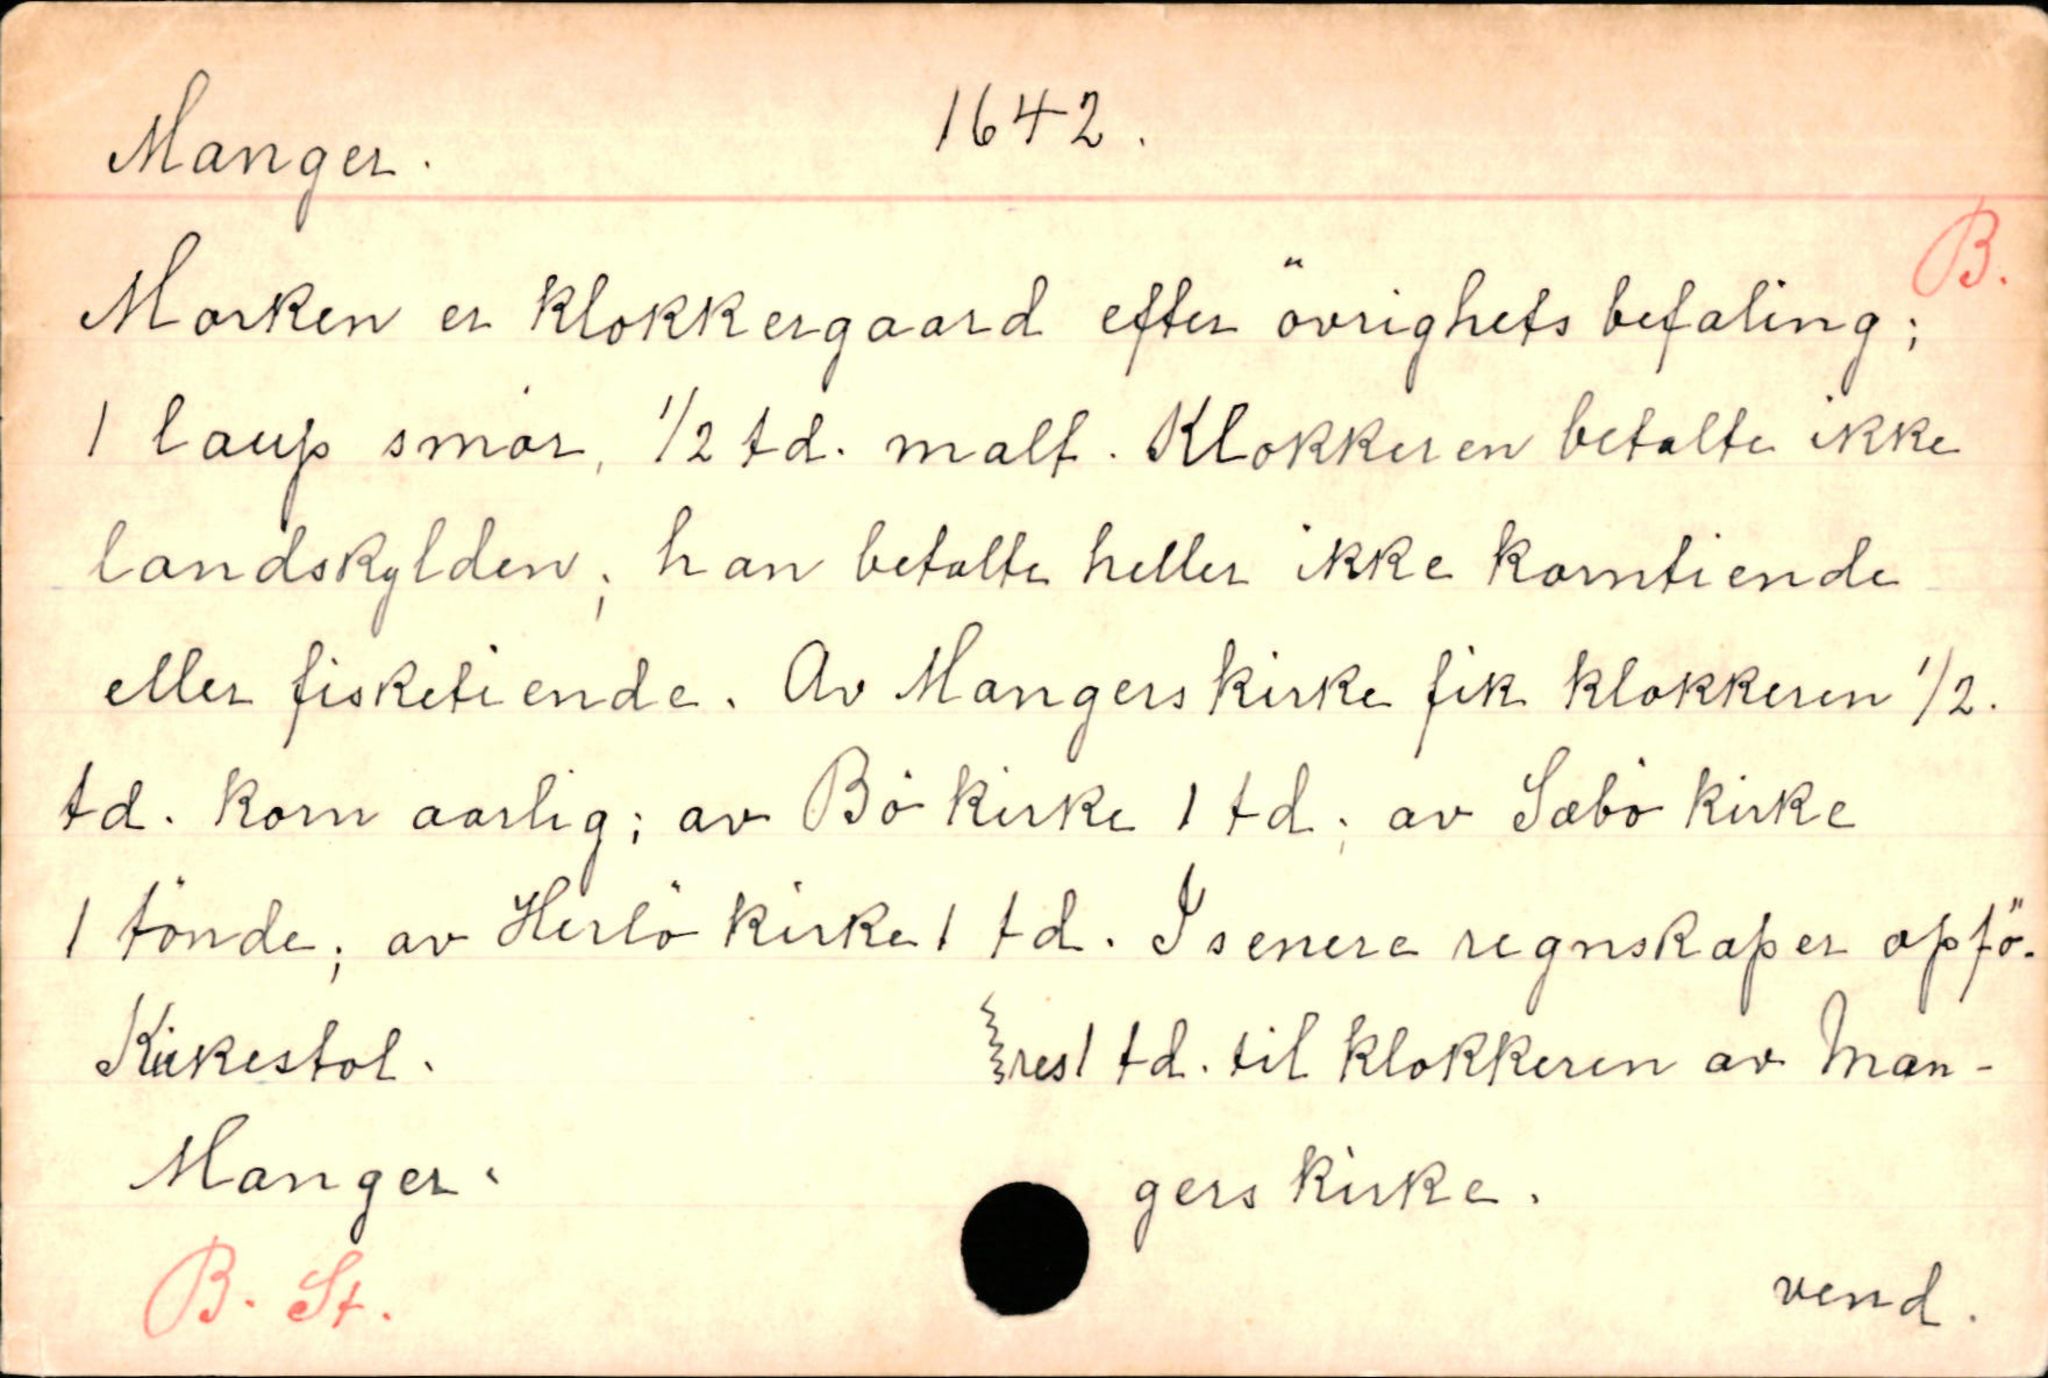 Manger. 1642.
B.
Morken er klokkergaard efter övrighets befaling;
1 laup smör, 1/2 td. malt. Klokkeren betalte ikke
landskylden; han betalte heller ikke korntiende
eller fisketiende. Av Mangers kirke fik klokkeren 1/2.
td. korn aarlig; av Bö kirke 1 td; av Sæbö kirke
1 tönde; av Herlö kirke 1 td. I senere regnskaper opfö-
Kirkestol. res 1 td. til klokkeren av Man-
Manger. gers kirke.
B. St. vend.